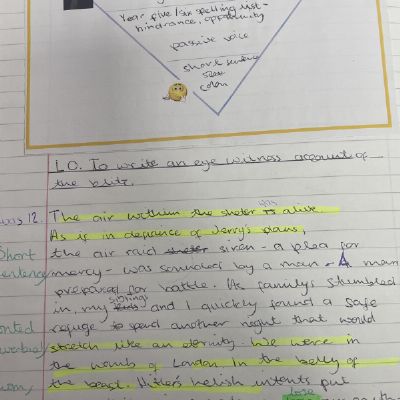 Year five/six spelling list -
hindrance, opportunity
passive voice
short sentence
colon
LO. To write an eye witness account of
the blitz.
12. The air within the shelter is alive.
As if in defiance of Jerry's plans,
Short the air raid shelter siren - a plea for
sentence mercy - was sounded by a man - A man
prepared for battle. As familys stumbled
in, my siblings and I quickly found a safe
refuge to spend another night that would
stretch like an eternity. We were in
the womb of London. In the belly of
the beast. Hitler's helish intents put